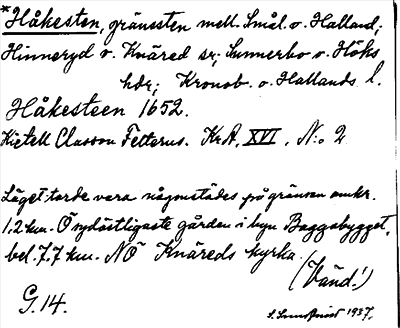 *Håkesten, gränssten mell. Smål. o. Halland;
Hinneryd o. Knäred sr; Sunnerbo o. Höks
hdr; Kronob. o. Hallands l.
Håkesteen 1652.
Kietell Classon Felterus. KrA, XVI, No 2
Läget torde vara någonstädes på gränsen omkr.
1,2 km. Ö nydöstligaste gården i byn Baggabygget,
bel. 7.7 km. NÖ Knäreds kyrka.
(Vänd!)
G. 14.
1937.